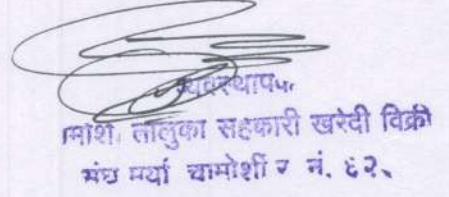 व्यवस्थापक
चामोर्शी तालुका सहकारी खरेदी विक्री
संघ मर्या चामोर्शी र नं. ६२